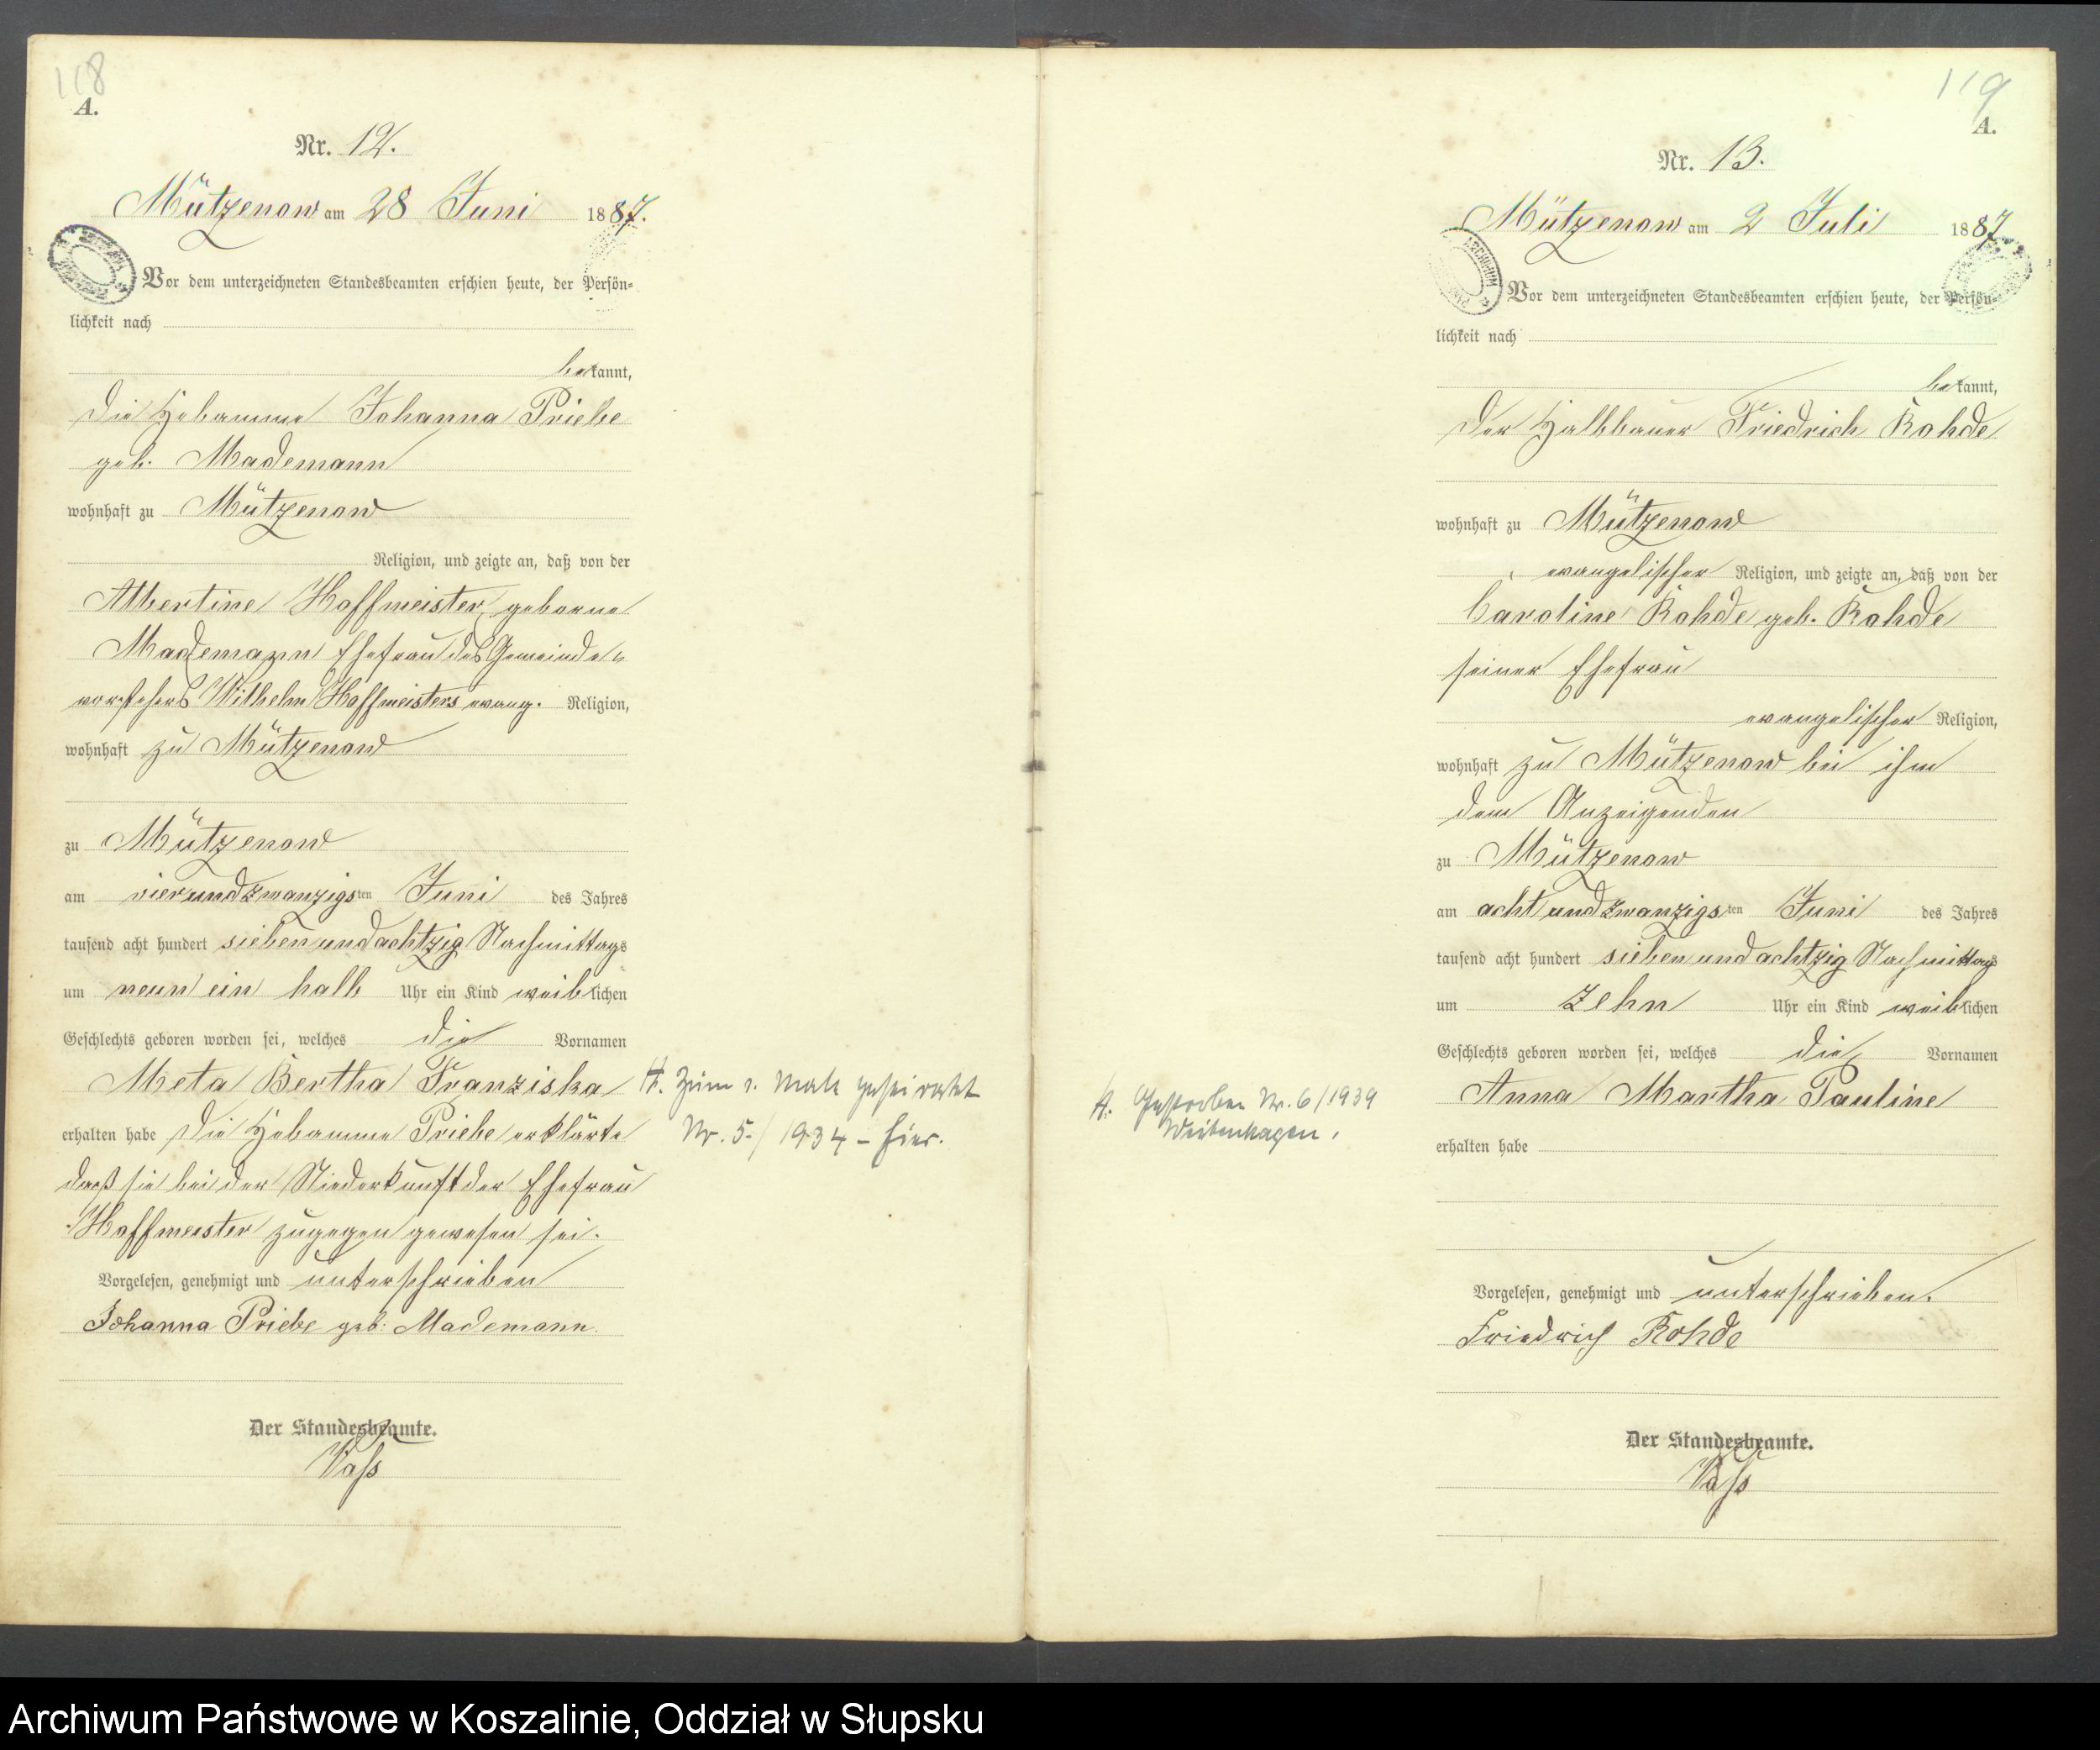 118
A.
Nr. 12.
Mützenow am 28 Juni 1887.
Vor dem unterzeichneten Standesbeamten erschien heute, der Persön-
lichkeit nach
bekannt,
die Hebamme Johanna Priebe
geb. Mademann
wohnhaft zu Mützenow
Religion, und zeigte an, daß von der
Albertine Hoffmeister, geborne
Mademann Ehefrau des Gemeinde-
vorstehers Wilhelm Hoffmeisters evang. Religion,
wohnhaft zu Mützenow
zu Mützenow
am vierundzwanzigsten Juni des Jahres
tausend acht hundert siebenundachtzig Nachmittags
um neun ein halb Uhr ein Kind weiblichen
Geschlechts geboren worden sei, welches die Vornamen
Meta Bertha Franziska
erhalten habe die Hebamme Priebe erklärte
daß sie bei der Niederkunft der Ehefrau
Hoffmeister zugegen gewesen sei.
Vorgelesen, genehmigt und unterschrieben
Johanna Priebe geb: Mademann.
Der Standesbeamte.
Vass
Zum Male geheiratet
Nr. 5./1934 – hier.
119
A.
Nr. 13.
Mützenow am 2 Juli 1887
Vor dem unterzeichneten Standesbeamten erschien heute, der Persön-
lichkeit nach
bekannt,
der Halbbauer Friedrich Rohde
wohnhaft zu Mützenow
evangelischer Religion, und zeigte an, daß von der
Caroline Rohde geb. Rohde
seiner Ehefrau
evangelischer Religion,
wohnhaft zu Mützenow bei ihm
dem Anzeigenden
zu Mützenow
am acht und zwanzigsten Juni des Jahres
tausend acht hundert sieben und achtzig Nachmittags
um zehn Uhr ein Kind weiblichen
Geschlechts geboren worden sei, welches die Vornamen
Anna Martha Pauline
erhalten habe
Gestorben Nr. 6/1939
Weitenhagen.
Vorgelesen, genehmigt und unterschrieben.
Friedrich Rohde
Der Standesbeamte.
Vass
Archiwum Państwowe w Koszalinie, Oddział w Słupsku